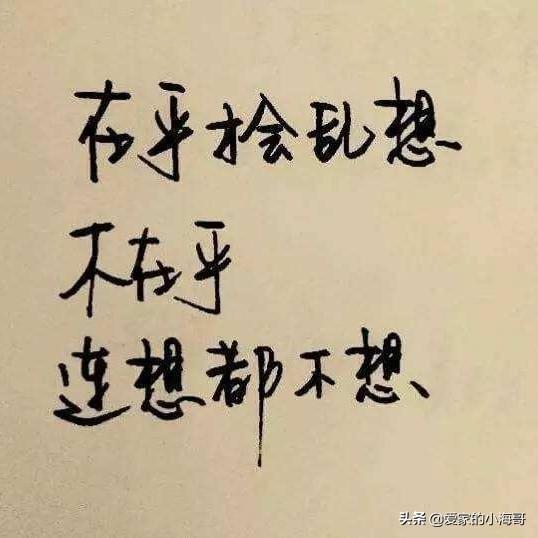 在乎才会乱想
不在乎
连想都不想
头条@爱家的小海哥